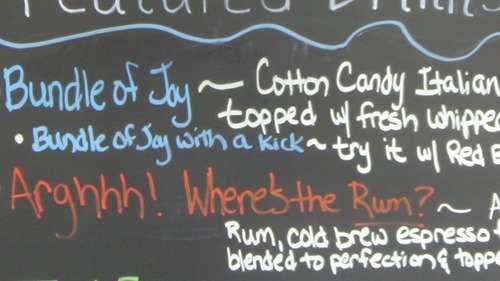 Featured Drinks
Bundle of Joy ~ Cotton Candy Italian
topped w/ fresh whipped
• Bundle of Joy with a kick ~ try it w/ Red
Arghhh! Where's the Rum? ~ A
Rum, cold brew espresso
blended to perfection & topped